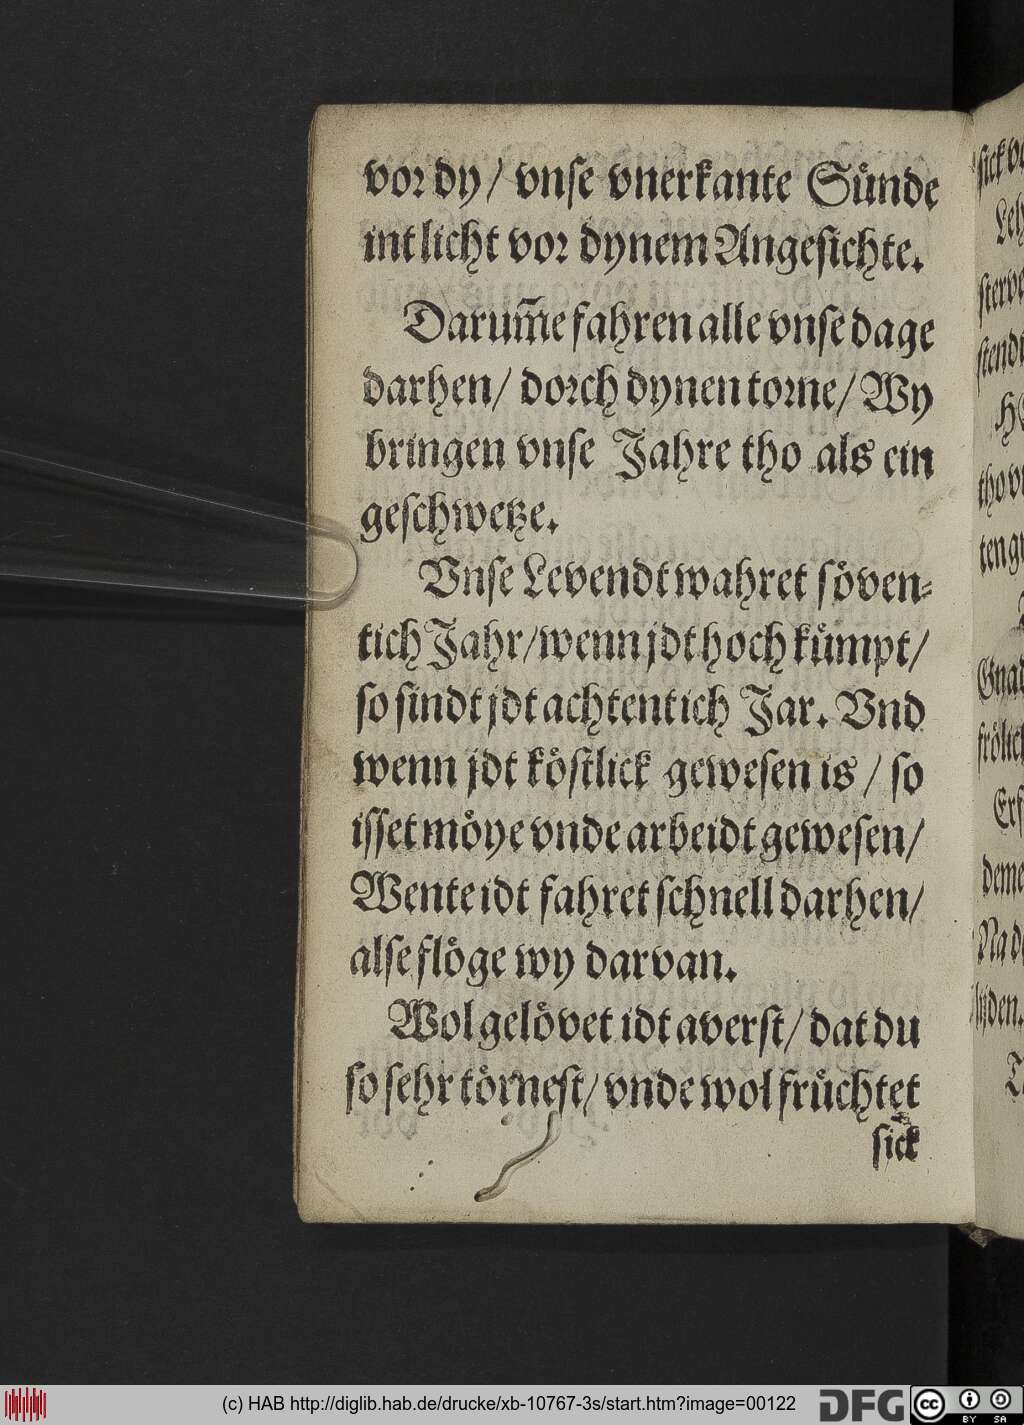 vor dy / vnse vnerkante Sünde
int licht vor dynem Angesichte.
Darum̄e fahren alle vnse dage
darhen / dorch dynen torne / Wy
bringen vnse Jahre tho als ein
geschwetze.
Vnse Levendt wahret söven-
tich Jahr / wenn jdt hoch kümpt /
so sindt jdt achtentich Jar. Vnd
wenn jdt köstlick gewesen is / so
isset möye vnde arbeidt gewesen /
Wente idt fahret schnell darhen /
alse flöge wy darvan.
Wol gelövet idt averst / dat du
so sehr törnest / vnde wol früchtet
sick
(c) HAB http://diglib.hab.de/drucke/xb-10767-3s/start.htm?image=00122
DFG
cc
BY
SA